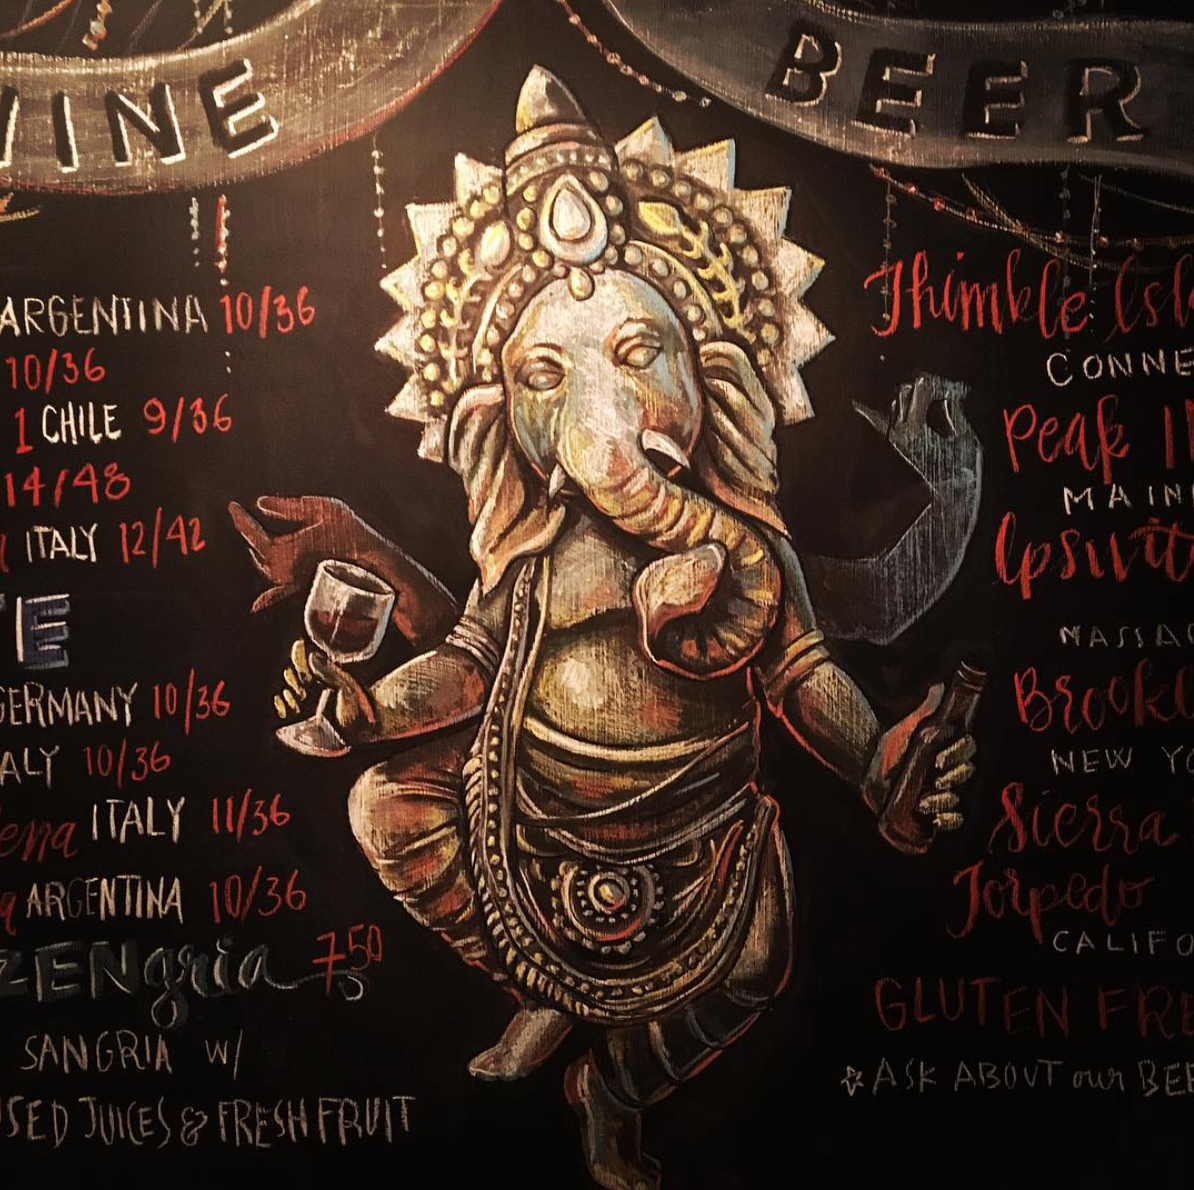 WINE
ARGENTINA 10/36
10/36
1 CHILE 9/36
14/48
ITALY 12/42
TE
GERMANY 10/36
ALY 10/36
ena ITALY 11/36
a ARGENTINA 10/36
ZENgria 7.50
SANGRIA W/
USED JUICES & FRESH FRUIT
BEER
Thimble Isl
CONNE
Peak
MAIN
Ipswit
MASSAC
Brookl
NEW YO
Sierra
Torpedo
CALIFO
GLUTEN FRE
☆ ASK ABOUT our BEE